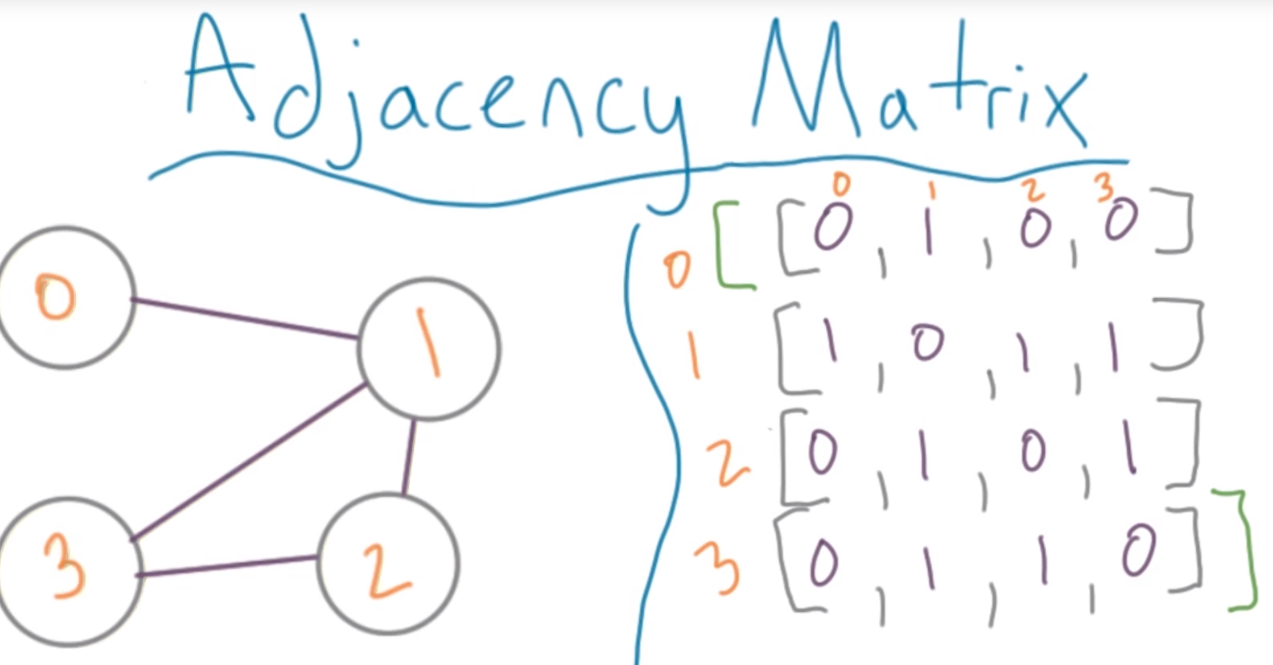 Adjacency Matrix
0 1 2 3
0 [ [0, 1, 0, 0]
0 1
1 [1, 0, 1, 1]
2 [0, 1, 0, 1]
3 2
3 [0, 1, 1, 0] ]